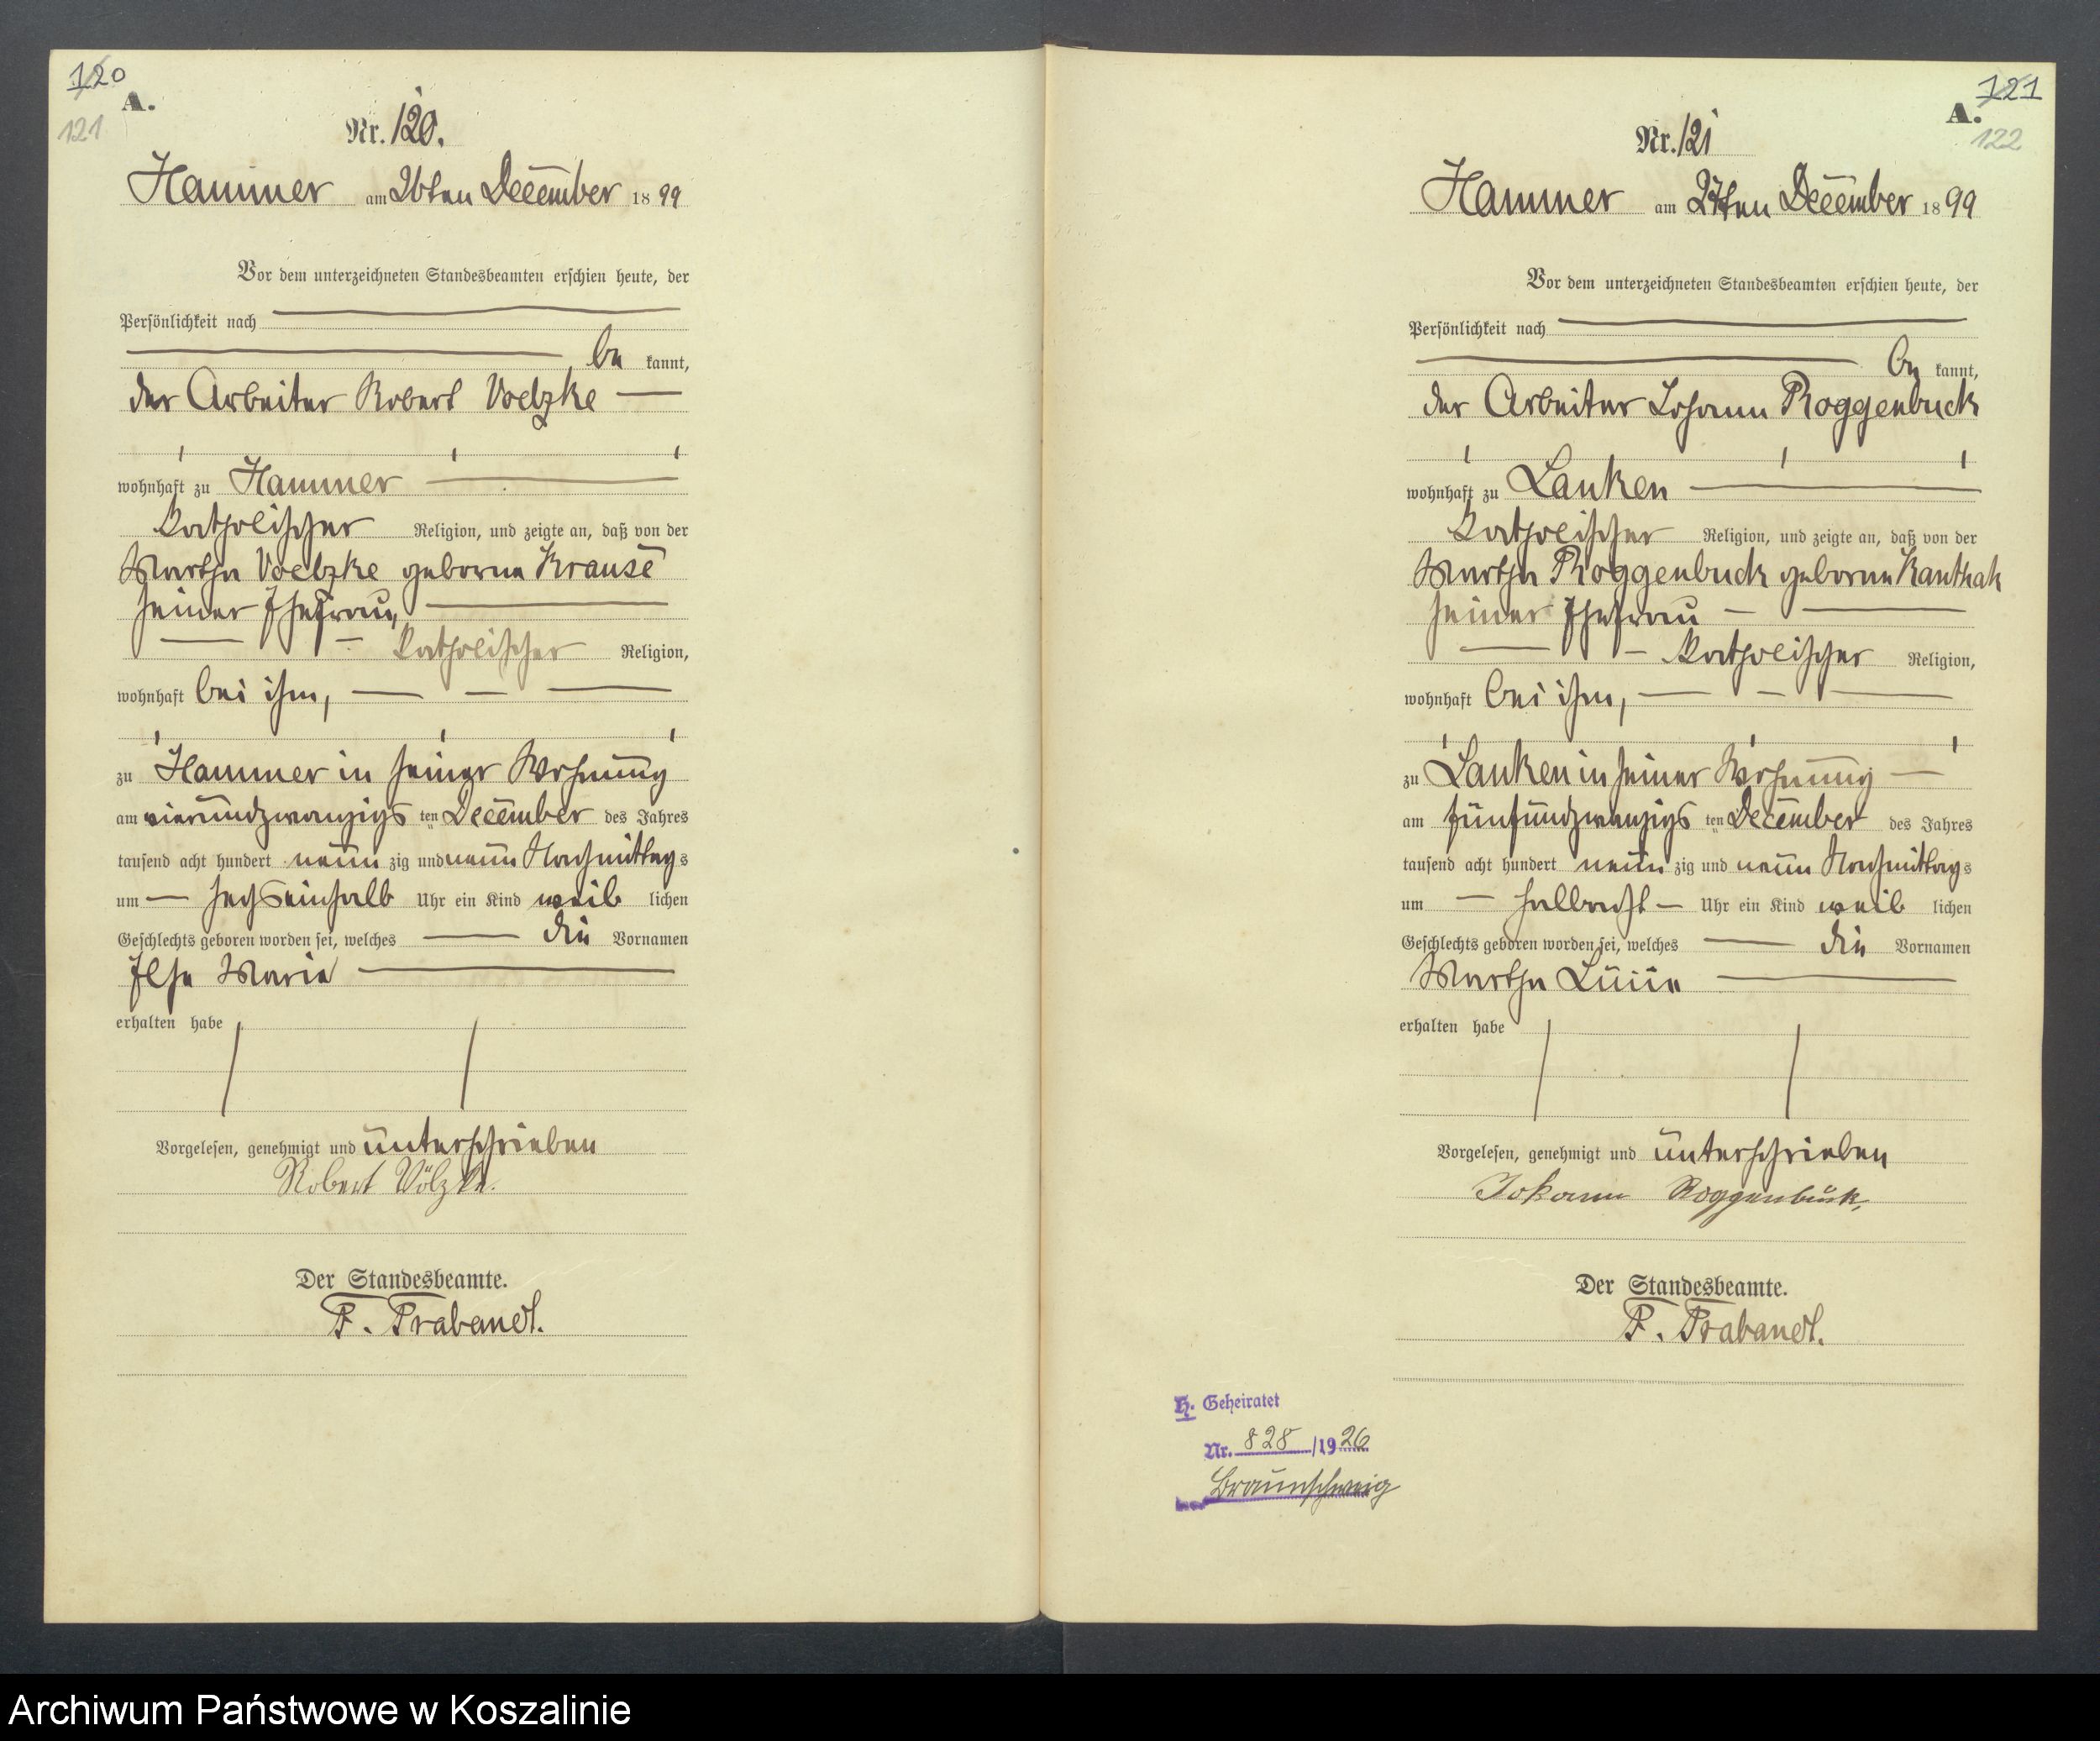 120
A.
121
Nr. 120.
Hammer am 26ten December 1899
Vor dem unterzeichneten Standesbeamten erschien heute, der
Persönlichkeit nach
be kannt,
der Arbeiter Robert Voelzke
wohnhaft zu Hammer
katholischer Religion, und zeigte an, daß von der
Martha Voelzke geborne Krause
seiner Ehefrau,
katholischer Religion,
wohnhaft bei ihm,
zu Hammer in seiner Wohnung
am vierundzwanzigs ten December des Jahres
tausend acht hundert neun zig und neun Nachmittags
um sechseinhalb Uhr ein Kind weib lichen
Geschlechts geboren worden sei, welches die Vornamen
Else Marie
erhalten habe
Vorgelesen, genehmigt und unterschrieben
Robert Völzke.
Der Standesbeamte.
F. Prabandt.
121
A.
122
Nr. 121
Hammer am 27ten December 1899
Vor dem unterzeichneten Standesbeamten erschien heute, der
Persönlichkeit nach
be kannt,
der Arbeiter Johann Roggenbuck
wohnhaft zu Lanken
katholischer Religion, und zeigte an, daß von der
Martha Roggenbuck geborne Kanthak
seiner Ehefrau
katholischer Religion,
wohnhaft bei ihm,
zu Lanken in seiner Wohnung
am fünfundzwanzigs ten December des Jahres
tausend acht hundert neun zig und neun Nachmittags
um halbacht Uhr ein Kind weib lichen
Geschlechts geboren worden sei, welches die Vornamen
Martha
erhalten habe
Vorgelesen, genehmigt und unterschrieben
Johann Roggenbuck,
Der Standesbeamte.
F. Prabandt.
H. Geheiratet
Nr. 828/1926
Braunschweig
Archiwum Państwowe w Koszalinie